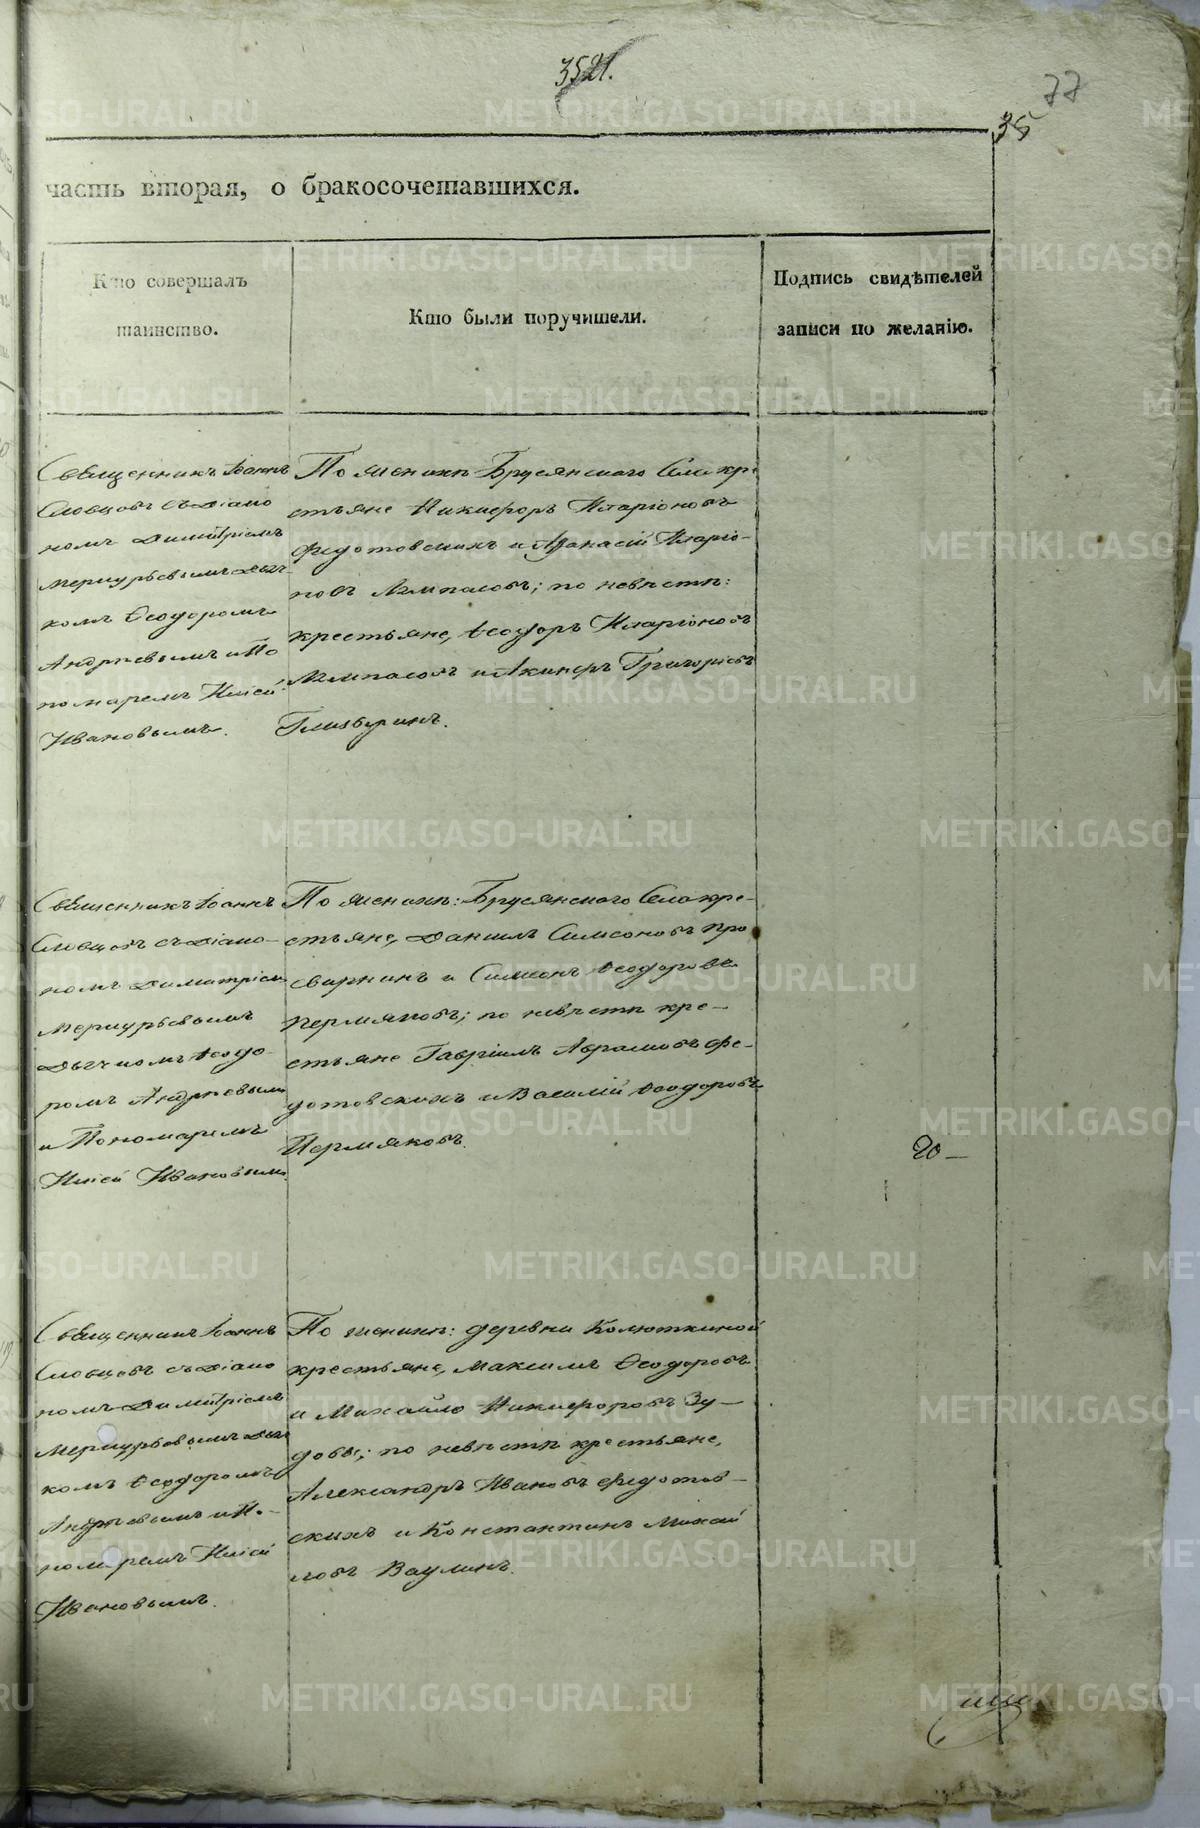 3521.
77
35
часть вторая, о бракосочетавшихся.
Кто совершалъ
таинство.
Кто были поручители.
Подпись свидѣтелей
записи по желанію.
Священникъ Іоаннъ
Словцовъ съ Діако
номъ Димитріемъ
Меркурьевымъ Дьяч
комъ Ѳеодоромъ
Андреевымъ и По
номаремъ Иліей
Ивановымъ.
По женихѣ Брусянскаго Села кре
стьяне Никифоръ Иларіоновъ
Федотовскихъ и Аѳанасій Иларіо-
новъ Ялмпасовъ; по невѣстѣ:
крестьяне, Ѳеодоръ Иларіоновъ
и Акинфъ Григорьевъ
Священникъ Іоаннъ
Словцовъ съ Діако-
номъ Димитріемъ
Меркурьевымъ
Дьячкомъ Ѳеодо-
ромъ Андреевымъ
и Пономаремъ
Иліей Ивановымъ.
По женихѣ: Брусянскаго Села кре-
стьяне, Даніилъ Симеоновъ Про
свирнинъ и Симеонъ Ѳеодоровъ
Пермяковъ; по невѣстѣ кре-
стьяне Гавріилъ Аврамовъ Фе-
дотовскихъ и Василій Ѳеодоровъ
Пермяковъ.
20-
Священникъ Іоаннъ
Словцовъ съ Діако
номъ Димитріемъ
Меркурьевымъ Дьяч
комъ Ѳеодоромъ
Андреевымъ и По-
номаремъ Иліей
Ивановымъ.
По женихѣ: деревни Колюткиной
крестьяне, Максимъ Ѳеодоровъ
и Михайло Никифоровъ Зу-
довы; по невѣстѣ крестьяне,
Александръ Ивановъ Федотов-
скихъ и Константинъ Михай
ловъ Ваулинъ.
METRIKI.GASO-URAL.RU